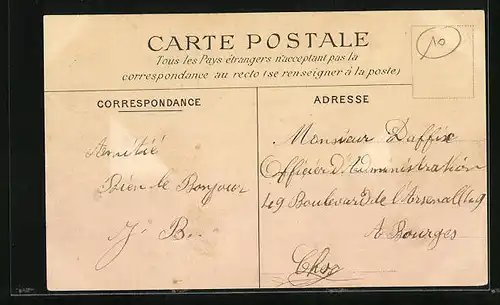 CARTE POSTALE
Tous les Pays étrangers n'acceptant pas la
correspondance au recto (se renseigner à la poste)
10
CORRESPONDANCE
Amitié
Bien le Bonjour
J. B.
ADRESSE
Monsieur Daffix
Officier d'Administration
49 Boulevard de l'Arsenal 49
A Bourges
Cher